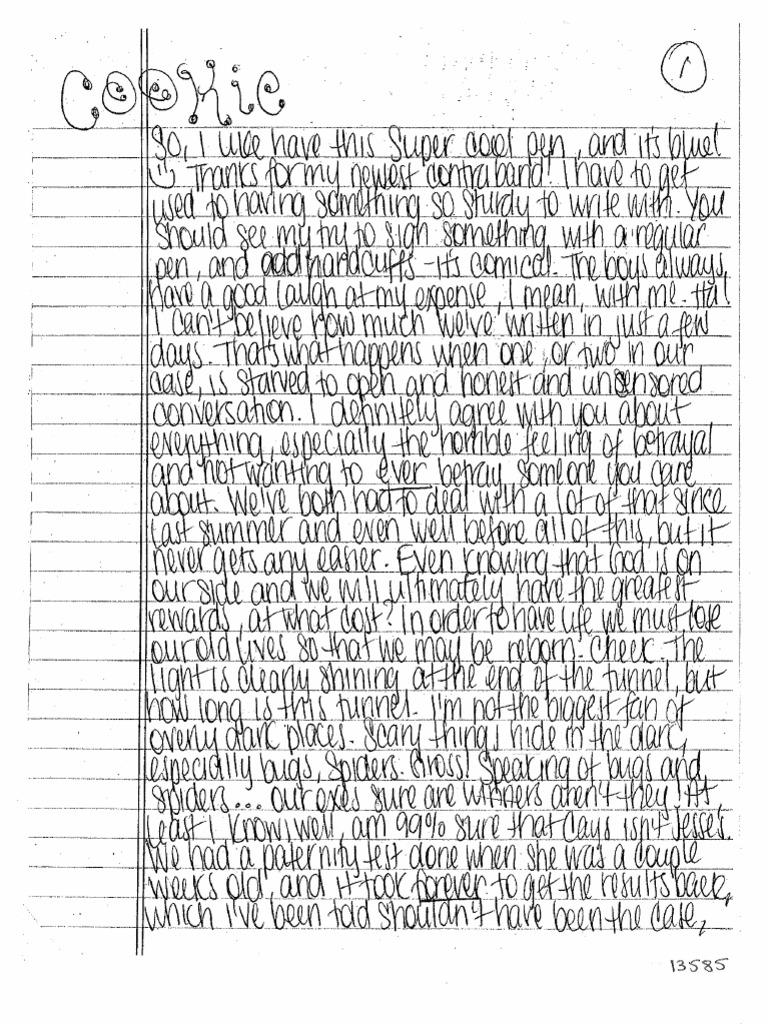 Cookie
1
So, I like have this super cool pen, and it's blue!
Thanks for my newest contraband! I have to get
used to having something so sturdy to write with. You
should see my try to sign something with a regular
pen, and add handcuffs - it's comical. The boys always
have a good laugh at my expense, I mean, with me. Ha!
I can't believe how much we've written in just a few
days. That's what happens when one, or two in our
case, is starved to open and honest and unsensored
conversation. I definitely agree with you about
everything, especially the horrible feeling of betrayal
and not wanting to ever betray someone you care
about. We've both had to deal with a lot of that since
last summer and even well before all of this, but it
never gets any easier. Even knowing that God is on
our side and we will ultimately have the greatest
rewards, at what cost? In order to have life we must lose
our old lives so that we may be reborn. Check. The
light is clearly shining at the end of the tunnel, but
how long is this tunnel. I'm not the biggest fan of
overly dark places. Scary things hide in the dark,
especially bugs, spiders. Gross! Speaking of bugs and
spiders... our exes sure are winners aren't they! At
least I know, well, am 99% sure that Cays isn't Jesse's.
We had a paternity test done when she was a couple
weeks old, and it took forever to get the results back,
which I've been told shouldn't have been the case,
13585